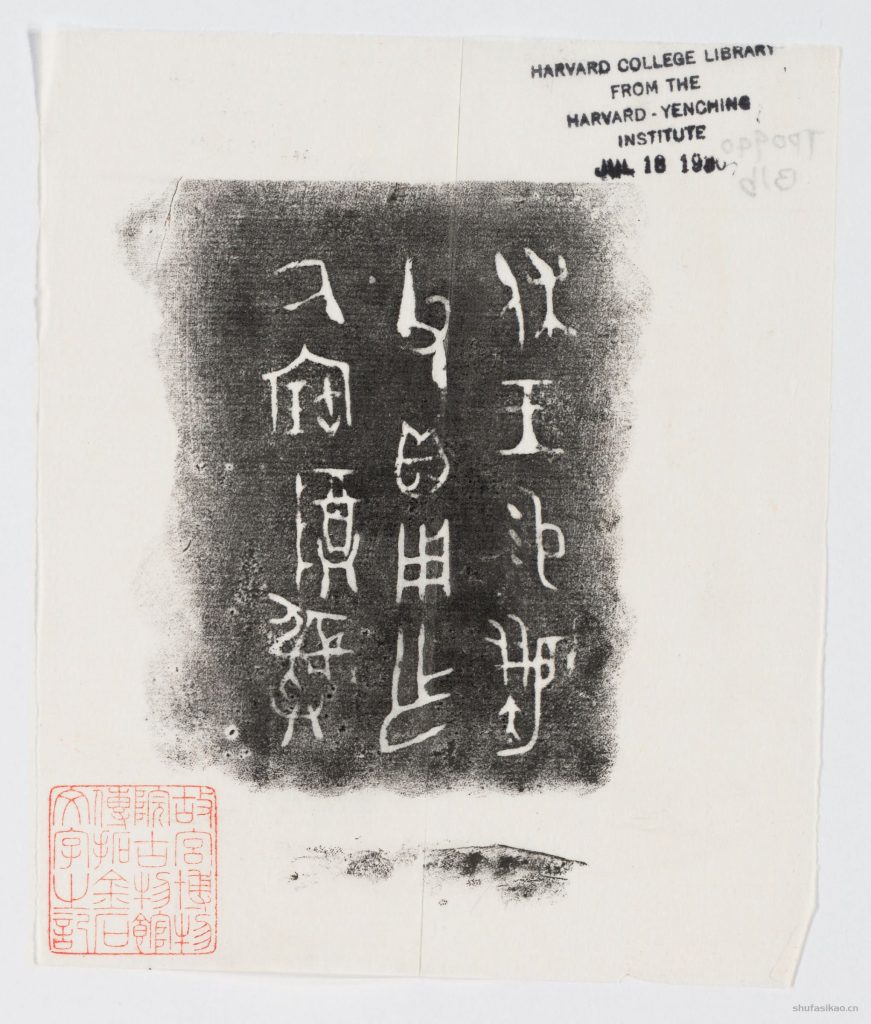 HARVARD COLLEGE LIBRARY
FROM THE
HARVARD-YENCHING
INSTITUTE
JUL 18
休王易
父貝用乍
氒寶尊彝
故宮博物
院古物館
傳拓金石
文字之記
shufasikao.cn